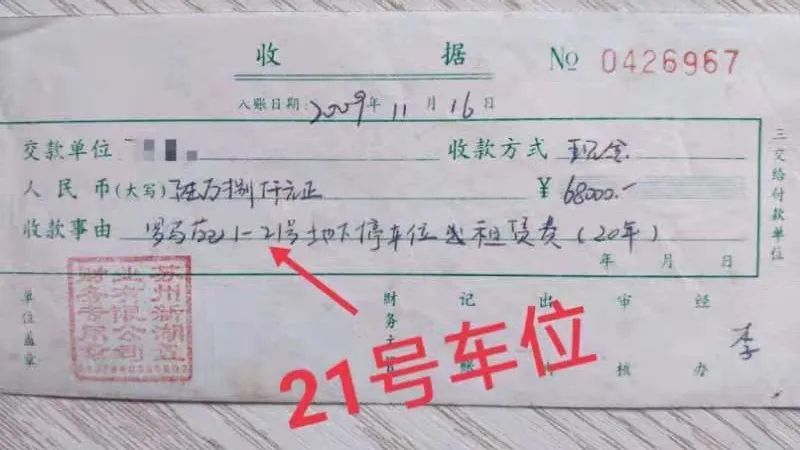 收 据 № 0426967
入账日期: 2009年 11 月 16 日
交款单位 收款方式 现金
人 民 币(大写) 陆万捌仟元正 ¥ 68000.-
收款事由 1-21号地下停车位 租赁费(20年)
年 月 日
三交给付款单位
单位盖章
财务 记 出 审 经
账 核 办
李
苏州新湖置
业有限公司
财务专用章
21号车位